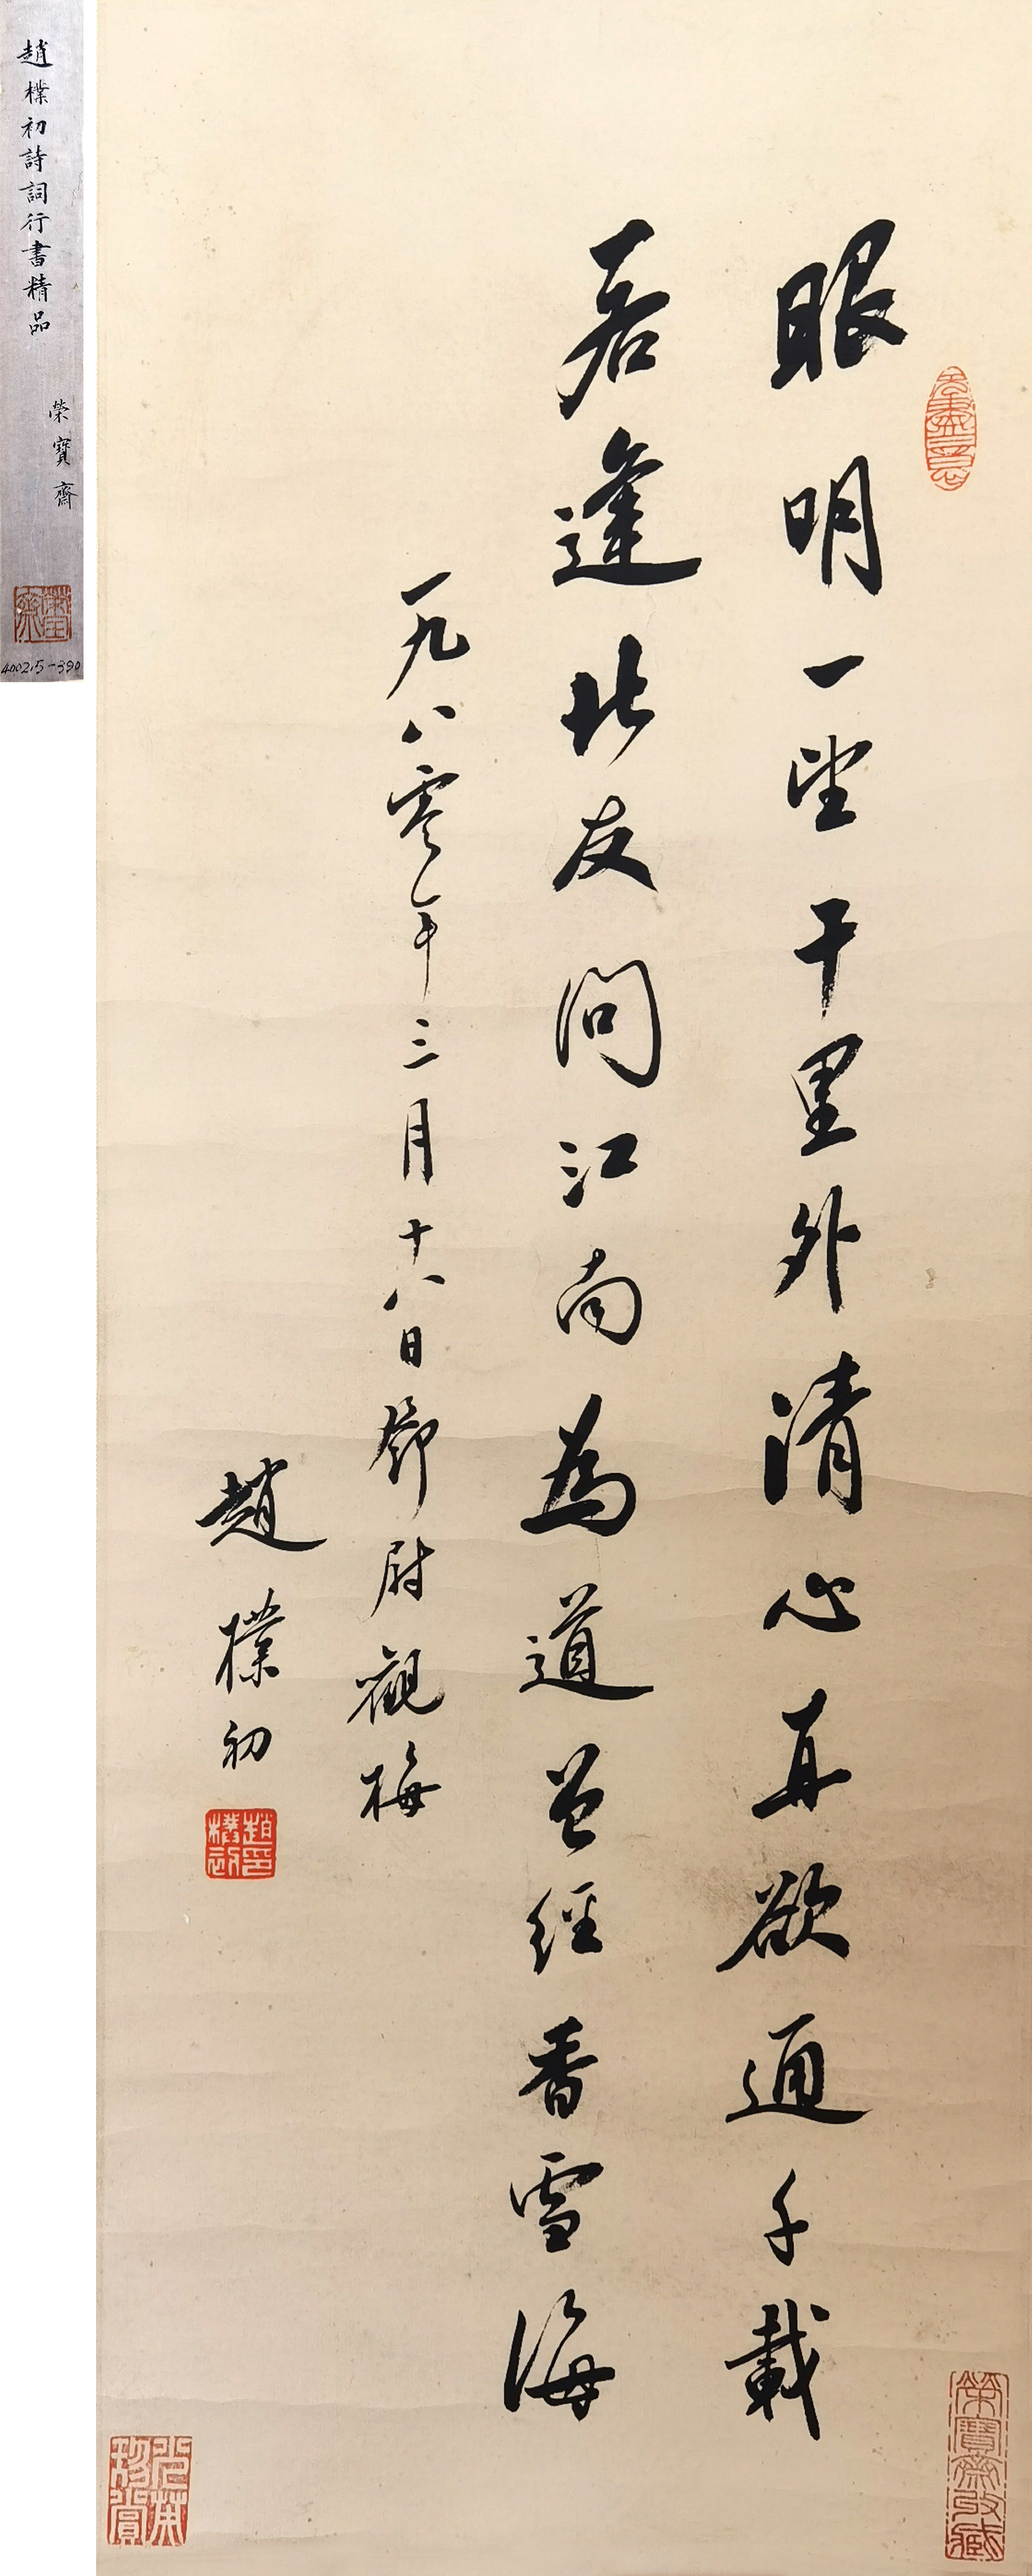 眼明一望千里外清心真欲通千載
若逢北友問江南為道曾經香雪海
一九八零年三月十八日鄧尉觀梅
趙樸初
趙樸初印
榮寶齋收藏
趙樸初詩詞行書精品
榮寶齋
榮寶齋
400215-390